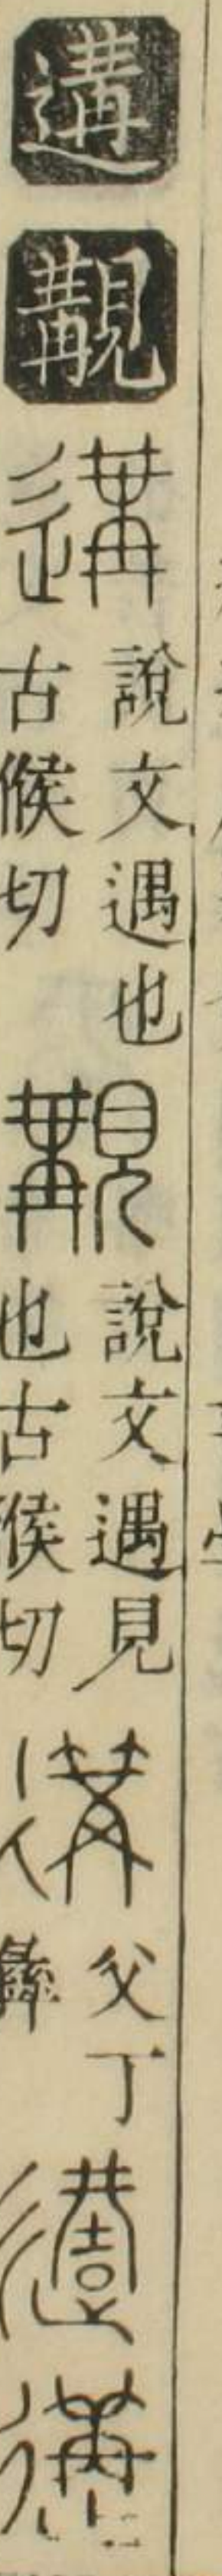 遘
覯
遘 說文遇也
古候切
覯 說文遇見
也古候切
父丁
彝